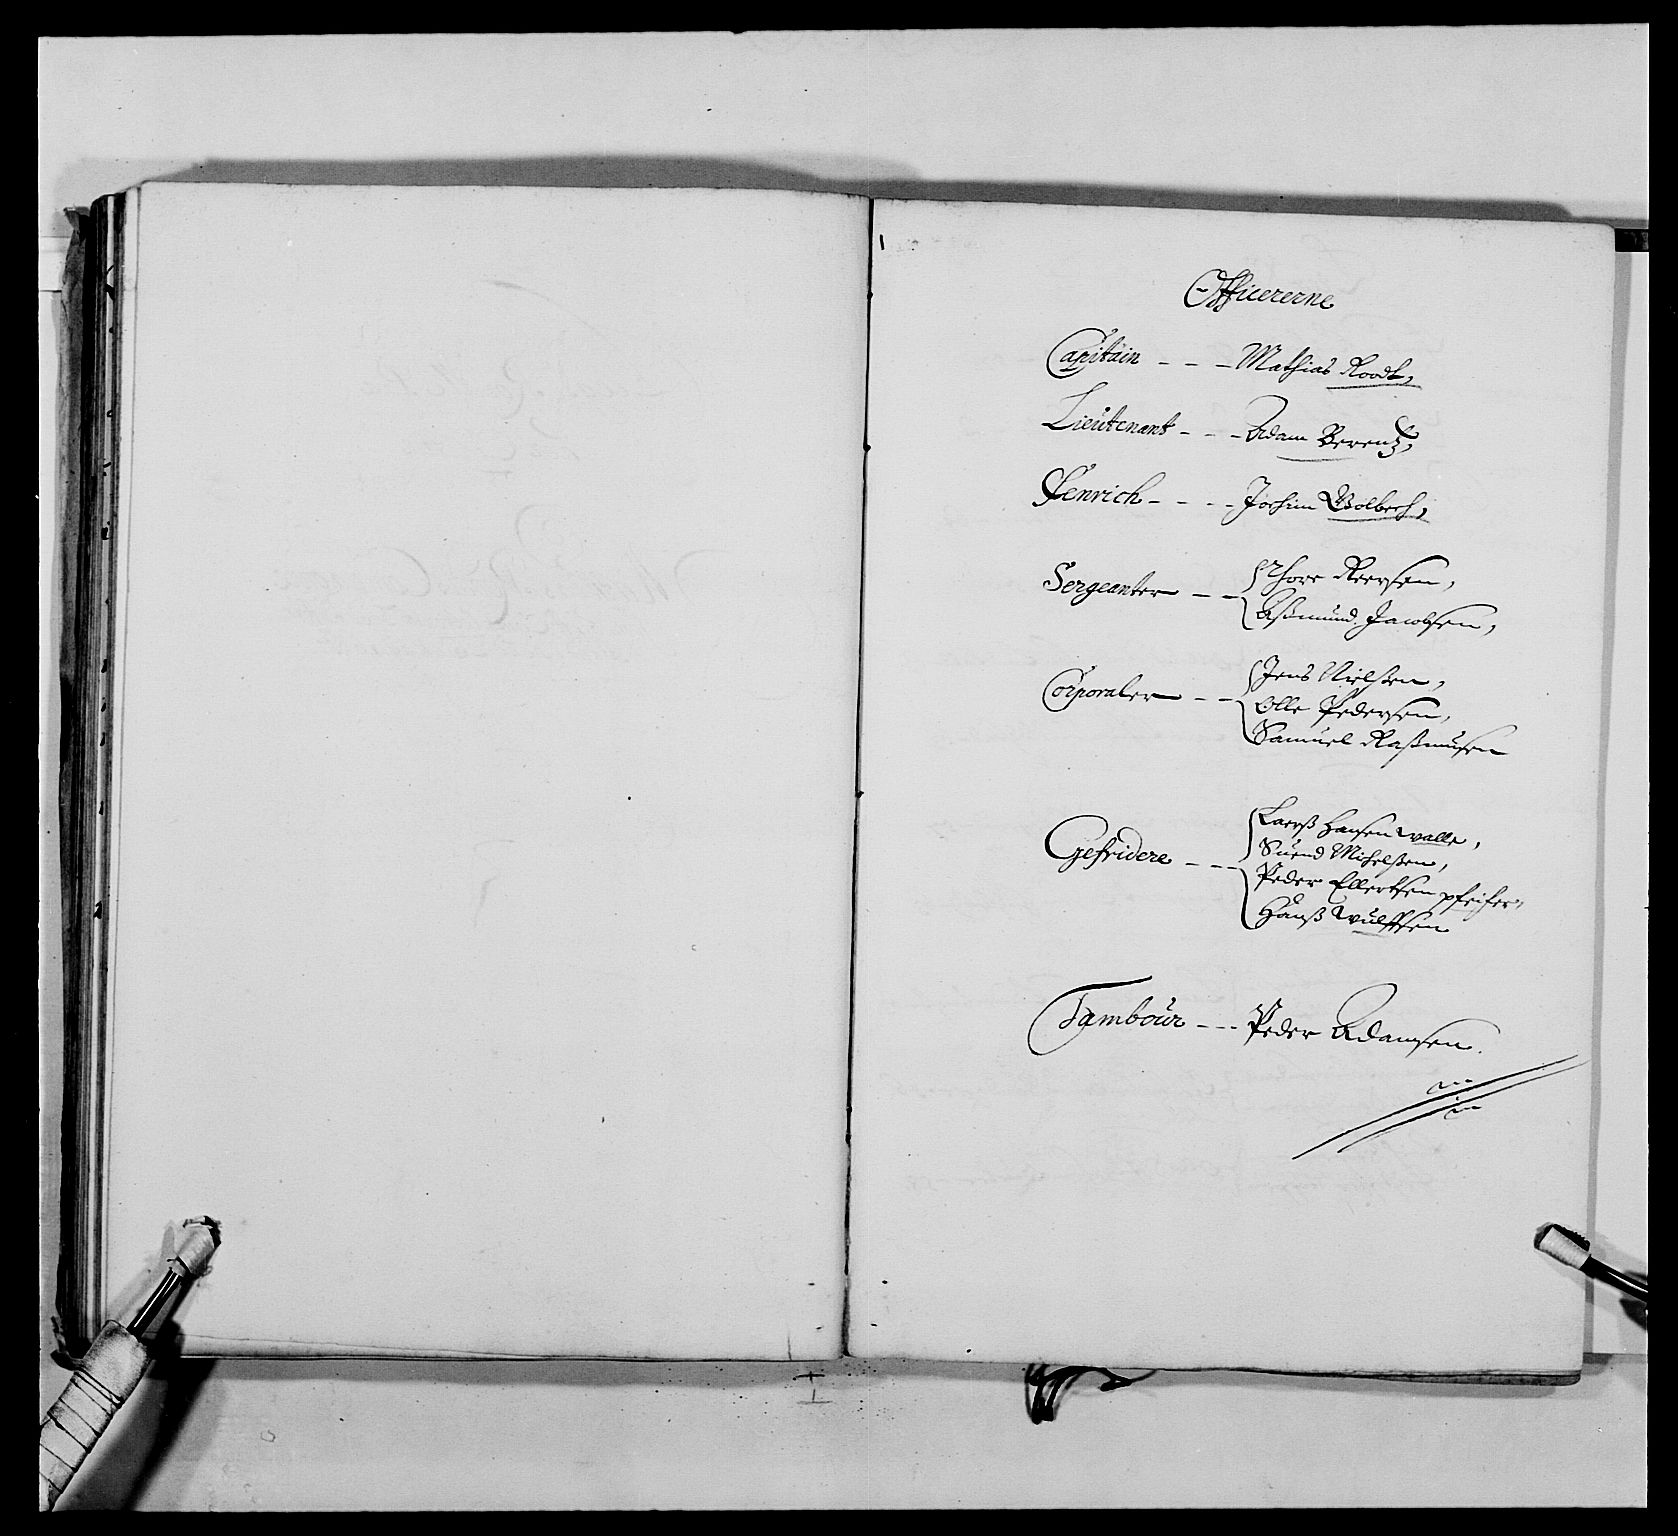 Officererne
Capitain - - - Mathias Roodt,
Lieutenant - - - Adam Berentz,
Fenrich - - - - Jochim Volbech,
Sergeanter - - Thore Reersen,
Aßmund Jacobsen,
Corporaler - - Jens Nielßen,
Olle Pedersen,
Samuel Raßmusen
Gefridere - - - Laerß Hansen Walle,
Suend Michelßen,
Peder Ellertsen pfeifer,
Hanß Wulffsen
Tambour - - - Peder Adamsen.